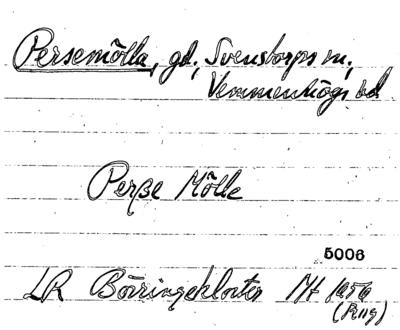 Persemölla, gd., Svenstorps sn,
Vemmenhögs hd
Perße Mölle
5006
LR Börringekloster Nf 1656
(Ring)